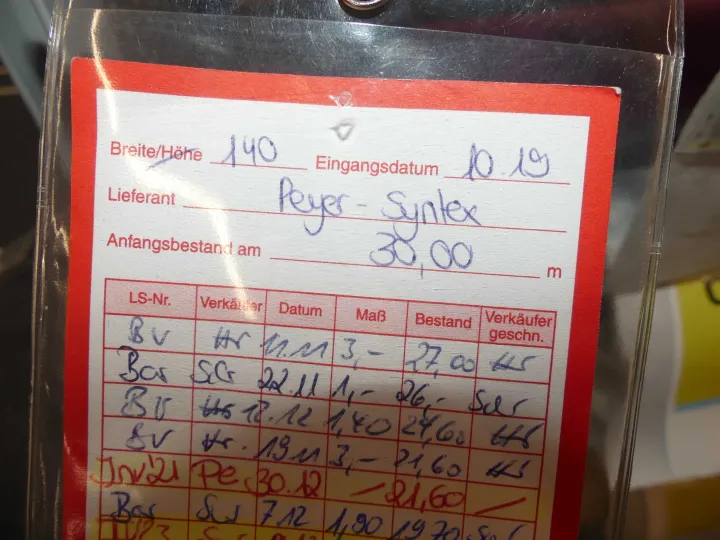 Breite/Höhe 140 Eingangsdatum 10.19
Lieferant Peyer-Syntex
Anfangsbestand am 30,00 m
LS-Nr. Verkäufer Datum Maß Bestand Verkäufer geschn.
BV Hr 11.11 3,- 27,00 Hr
Bar Scr 22.11 1,- 26,- Scr
BV Hr 12.12 1,40 24,60 Hr
BV Hr. 19.11 3,- 21,60 Hr
Inv'21 Pe. 30.12 / 21,60 /
Bar Scr 7.12 1,90 19,70